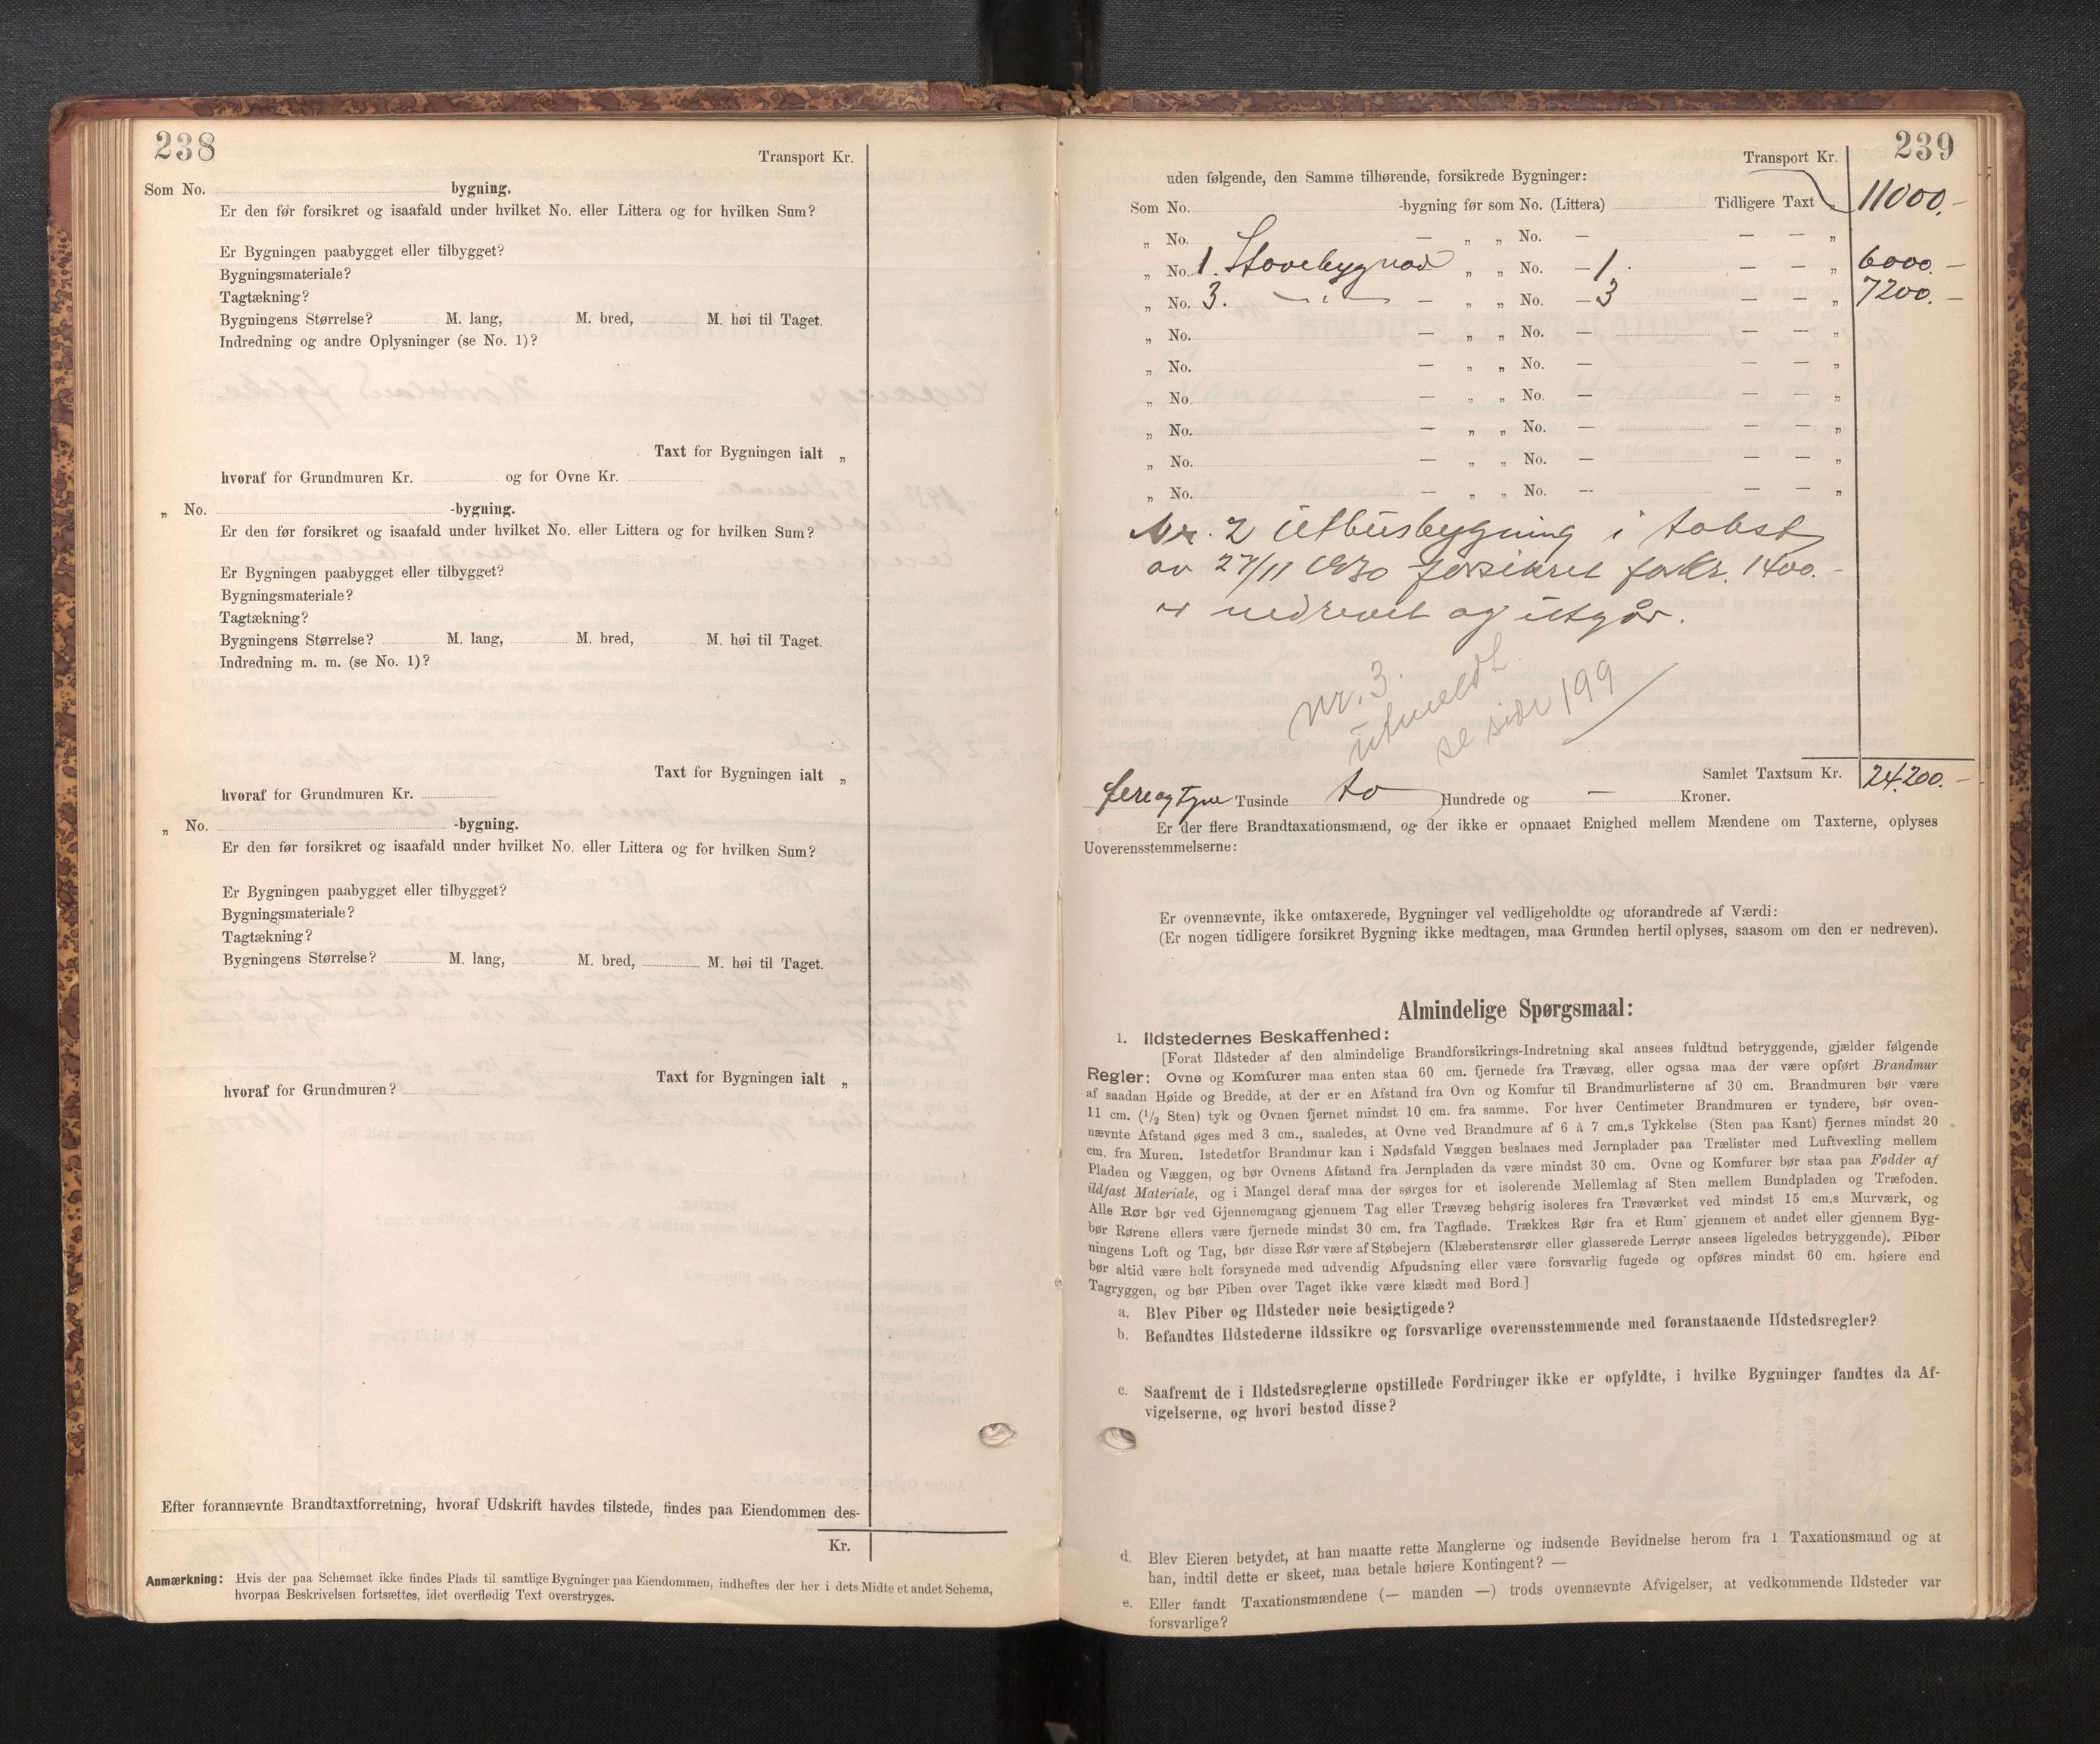 238
Transport Kr.
Som No. bygning.
Er den før forsikret og isaafald under hvilket No. eller Littera og for hvilken Sum?
Er Bygningen paabygget eller tilbygget?
Bygningsmateriale?
Tagtækning?
Bygningens Størrelse? M. lang, M. bred, M. høi til Taget.
Indredning og andre Oplysninger (se No. 1)?
Taxt for Bygningen ialt „
hvoraf for Grundmuren Kr. og for Ovne Kr.
„ No. -bygning.
Er den før forsikret og isaafald under hvilket No. eller Littera og for hvilken Sum?
Er Bygningen paabygget eller tilbygget?
Bygningsmateriale?
Tagtækning?
Bygningens Størrelse? M. lang, M. bred, M. høi til Taget.
Indredning m. m. (se No. 1)?
Taxt for Bygningen ialt „
hvoraf for Grundmuren Kr.
„ No. -bygning.
Er den før forsikret og isaafald under hvilket No. eller Littera og for hvilken Sum?
Er Bygningen paabygget eller tilbygget?
Bygningsmateriale?
Tagtækning?
Bygningens Størrelse? M. lang, M. bred, M. høi til Taget.
Taxt for Bygningen ialt „
hvoraf for Grundmuren?
Efter forannævnte Brandtaxtforretning, hvoraf Udskrift havdes tilstede, findes paa Eiendommen des-
Kr.
Anmærkning: Hvis der paa Schemaet ikke findes Plads til samtlige Bygninger paa Eiendommen, indheftes der her i dets Midte et andet Schema,
hvorpaa Beskrivelsen fortsættes, idet overflødig Text overstryges.
239
Transport Kr.
uden følgende, den Samme tilhørende, forsikrede Bygninger:
Som No. -bygning før som No. (Littera) Tidligere Taxt „ 11000.-
„ No. — „ „ No. — — — „
„ No. 1. Stovebygnad „ „ No. — 1. — — „ 6000.-
„ No. 3. —"— — „ „ No. — 3 — — „ 7200.-
„ No. — „ „ No. — — — „
„ No. — „ „ No. — — — „
„ No. — „ „ No. — — — „
„ No. — „ „ No. — — — „
„ No. — „ „ No. — — — „
„ No. — „ „ No. — — — „
Nr. 2 Uthusbygning i takst
av 27/11 1930 forsikret for kr. 1400.-
er nedrevet og utgår.
nr. 3.
utmeldt
se side 199
Samlet Taxtsum Kr. 24.200.-
fireogtyve Tusinde to Hundrede og — Kroner.
Er der flere Brandtaxationsmænd, og der ikke er opnaaet Enighed mellem Mændene om Taxterne, oplyses
Uoverensstemmelserne:
Er ovennævnte, ikke omtaxerede, Bygninger vel vedligeholdte og uforandrede af Værdi:
(Er nogen tidligere forsikret Bygning ikke medtagen, maa Grunden hertil oplyses, saasom om den er nedreven).
Almindelige Spørgsmaal:
1. Ildstedernes Beskaffenhed:
[Forat Ildsteder af den almindelige Brandforsikrings-Indretning skal ansees fuldtud betryggende, gjælder følgende
Regler: Ovne og Komfurer maa enten staa 60 cm. fjernede fra Trævæg, eller ogsaa maa der være opført Brandmur
af saadan Høide og Bredde, at der er en Afstand fra Ovn og Komfur til Brandmurlisterne af 30 cm. Brandmuren bør være
11 cm. (1/2 Sten) tyk og Ovnen fjernet mindst 10 cm. fra samme. For hver Centimeter Brandmuren er tyndere, bør oven-
nævnte Afstand øges med 3 cm., saaledes, at Ovne ved Brandmure af 6 à 7 cm.s Tykkelse (Sten paa Kant) fjernes mindst 20
cm. fra Muren. Istedetfor Brandmur kan i Nødsfald Væggen beslaaes med Jernplader paa Trælister med Luftvexling mellem
Pladen og Væggen, og bør Ovnens Afstand fra Jernpladen da være mindst 30 cm. Ovne og Komfurer bør staa paa Fødder af
ildfast Materiale, og i Mangel deraf maa der sørges for et isolerende Mellemlag af Sten mellem Bundpladen og Træfoden.
Alle Rør bør ved Gjennemgang gjennem Tag eller Trævæg behørig isoleres fra Træværket ved mindst 15 cm.s Murværk, og
bør Rørene ellers være fjernede mindst 30 cm. fra Tagflade. Trækkes Rør fra et Rum gjennem et andet eller gjennem Byg-
ningens Loft og Tag, bør disse Rør være af Støbejern (Klæberstensrør eller glasserede Lerrør ansees ligeledes betryggende). Piber
bør altid være helt forsynede med udvendig Afpudsning eller være forsvarlig fugede og opføres mindst 60 cm. høiere end
Tagryggen, og bør Piben over Taget ikke være klædt med Bord.]
a. Blev Piber og Ildsteder nøie besigtigede?
b. Befandtes Ildstederne ildssikre og forsvarlige overensstemmende med foranstaaende Ildstedsregler?
c. Saafremt de i Ildstedsreglerne opstillede Fordringer ikke er opfyldte, i hvilke Bygninger fandtes da Af-
vigelserne, og hvori bestod disse?
d. Blev Eieren betydet, at han maatte rette Manglerne og indsende Bevidnelse herom fra 1 Taxationsmand og at
han, indtil dette er skeet, maa betale høiere Kontingent? —
e. Eller fandt Taxationsmændene (— manden —) trods ovennævnte Afvigelser, at vedkommende Ildsteder var
forsvarlige?